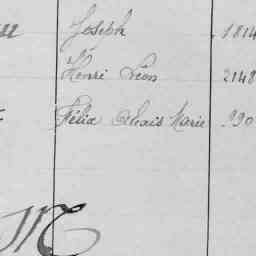 Joseph 1814
Henri Léon 2148
Félix Marie 990
M